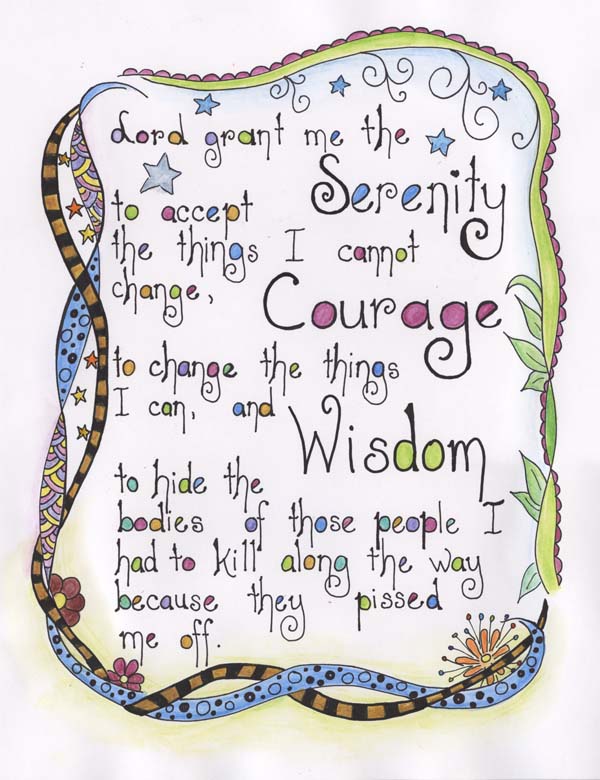 Lord grant me the
Serenity
to accept
the things I cannot
change,
Courage
to change the things
I can, and
Wisdom
to hide the
bodies of those people I
had to kill along the way
because they pissed
me off.